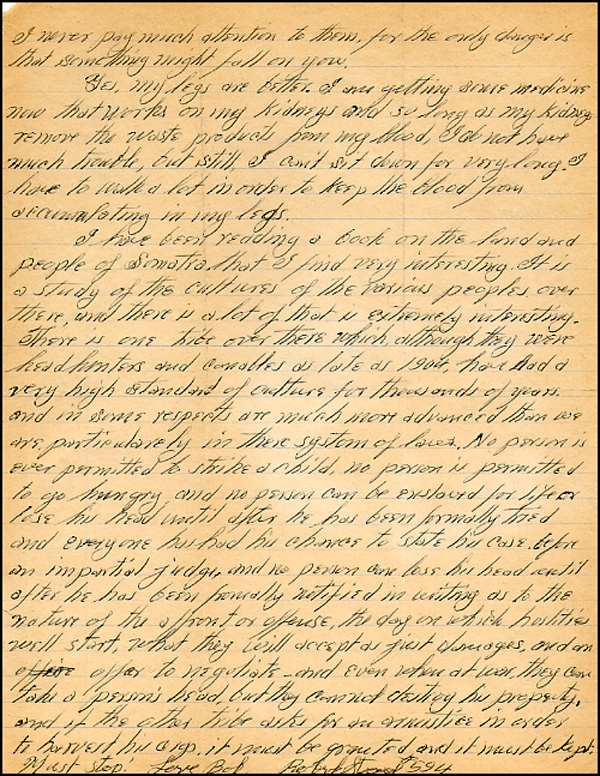 I never pay much attention to them, for the only danger is
that something might fall on you.
Yes, my legs are better. I am getting some medicine
now that works on my kidneys and so long as my kidneys
remove the waste products from my blood, I do not have
much trouble, but still, I can't sit down for very long. I
have to walk a lot in order to keep the blood from
accumulating in my legs.
I have been redding a book on the land and
people of Somatra that I find very interesting. It is
a study of the cultures of the various peoples over
there, and there is a lot of that is extremely interesting.
There is one tribe over there which although they were
headhunters and canables as late as 1904, have had a
very high standard of culture for thousands of years.
and in some respects are much more advanced than we
are, particularely in there system of laws. No person is
ever permitted to strike a child, no person is permitted
to go hungry and no person can be enslaved for life or
lose his head until after he has been formally tried
and everyone has had his chance to state his case before
an impartial judge, and no person can lose his head until
after he has been formally notified in writing as to the
nature of the affront or offense, the day on which hostilities
will start, what they will accept as just damages, and an
offer to negotiate - and even when at war, they can
take a person's head, but they cannot destroy his property,
and if the other tribe asks for an armistice in order
to harvest his crops, it must be granted, and it must be kept.
Must stop! Love Bob. 594